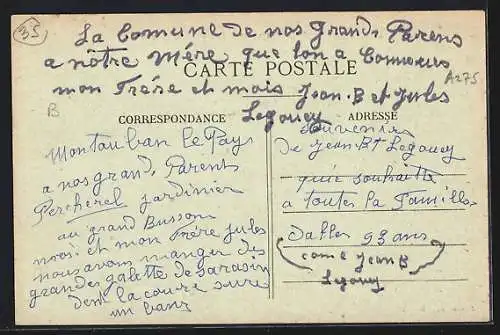 35
La Comune de nos Grands Parens
a nôtre Mére que lon a Connous
CARTE POSTALE
mon Frére et mois Jean.B et Jules
Legouey
A275
B
CORRESPONDANCE
Montauban le Pays
a nos grand. Parents
Percherel jardinier
au grand Busson
moi et mon Frére jules
nous avons manger des
grandes galette de sarasin
dent la coure sur
un banz
ADRESSE
Souvenirs
de Jean Bt Legouey
qui souhaitte
a toutes la Famille
daller 93 ans
come Jean B
Legouey